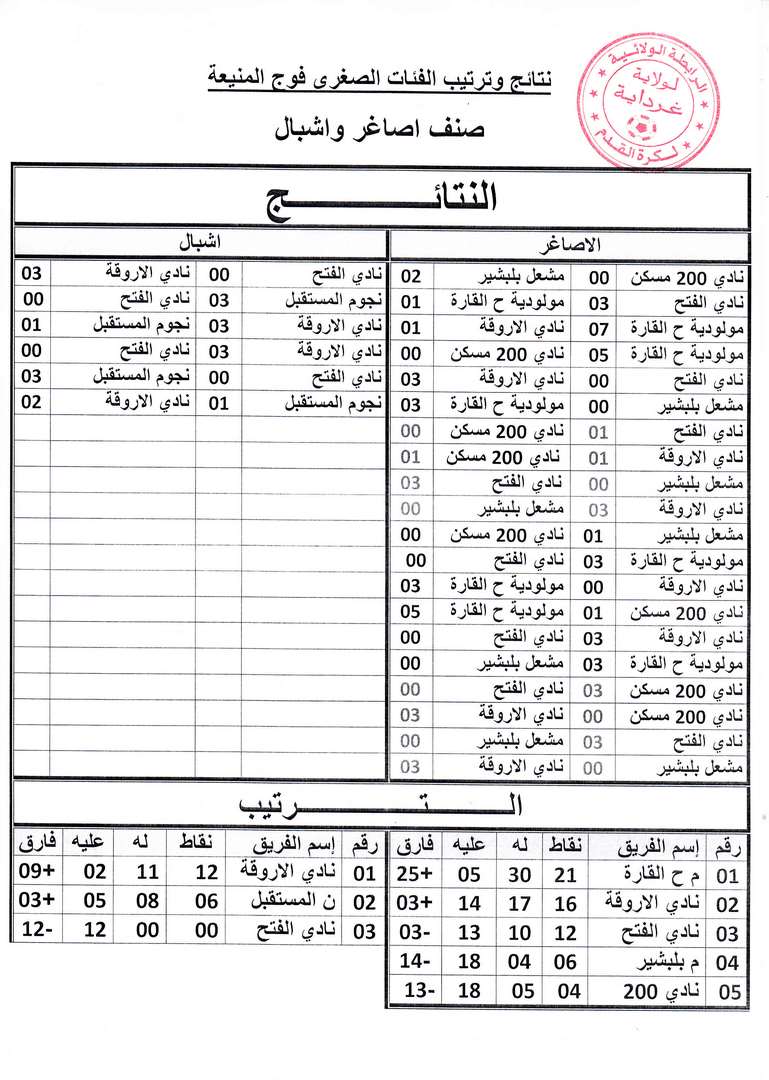 نتائج وترتيب الفئات الصغرى فوج المنيعة
صنف اصاغر واشبال
الرابطة الولائية
لولاية
غرداية
لكرة القدم
النتائج
الاصاغر اشبال
نادي 200 مسكن 00 مشعل بلبشير 02 نادي الفتح 00 نادي الاروقة 03
نادي الفتح 03 مولودية ح القارة 01 نجوم المستقبل 03 نادي الفتح 00
مولودية ح القارة 07 نادي الاروقة 01 نادي الاروقة 03 نجوم المستقبل 01
مولودية ح القارة 05 نادي 200 مسكن 00 نادي الاروقة 03 نادي الفتح 00
نادي الفتح 00 نادي الاروقة 03 نادي الفتح 00 نجوم المستقبل 03
مشعل بلبشير 00 مولودية ح القارة 03 نجوم المستقبل 01 نادي الاروقة 02
نادي الفتح 01 نادي 200 مسكن 00
نادي الاروقة 01 نادي 200 مسكن 01
مشعل بلبشير 00 نادي الفتح 03
نادي الاروقة 03 مشعل بلبشير 00
مشعل بلبشير 01 نادي 200 مسكن 00
مولودية ح القارة 03 نادي الفتح 00
نادي الاروقة 00 مولودية ح القارة 03
نادي 200 مسكن 01 مولودية ح القارة 05
نادي الاروقة 03 نادي الفتح 00
مولودية ح القارة 03 مشعل بلبشير 00
نادي 200 مسكن 03 نادي الفتح 00
نادي 200 مسكن 00 نادي الاروقة 03
نادي الفتح 03 مشعل بلبشير 00
مشعل بلبشير 00 نادي الاروقة 03
الترتيب
رقم إسم الفريق نقاط له عليه فارق رقم إسم الفريق نقاط له عليه فارق
01 م ح القارة 21 30 05 +25 01 نادي الاروقة 12 11 02 +09
02 نادي الاروقة 16 17 14 +03 02 ن المستقبل 06 08 05 +03
03 نادي الفتح 12 10 13 -03 03 نادي الفتح 00 00 12 -12
04 م بلبشير 06 04 18 -14
05 نادي 200 04 05 18 -13